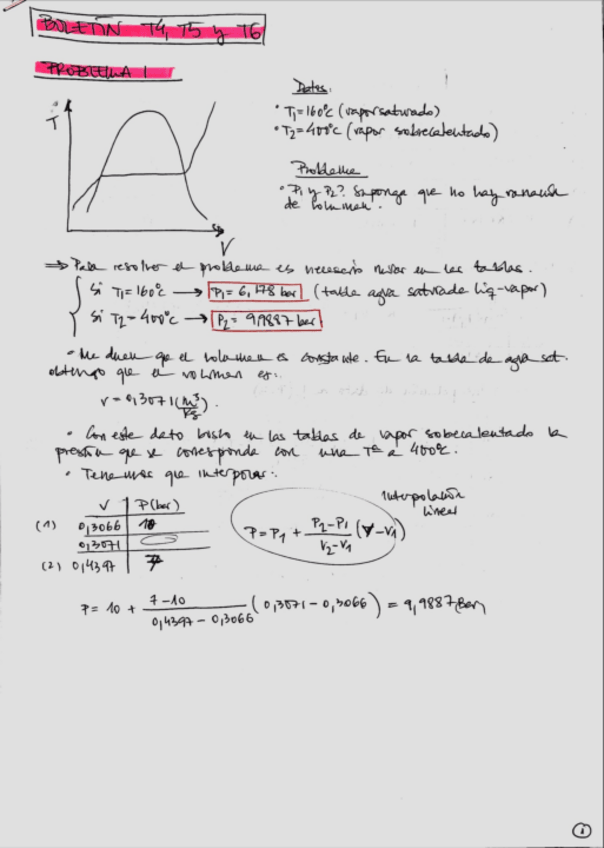 BOLETÍN T4, T5 y T6
PROBLEMA 1
Datos:
• T1=160°C (vapor saturado)
• T2=400°C (vapor sobrecalentado)
Problema
• P1 y P2? Suponga que no hay variación
de volumen.
T
V
⇒ Para resolver el problema es necesario mirar en las tablas.
Si T1=160°C → P1= 6,178 bar (tabla agua saturada liq-vapor)
Si T2=400°C → P2= 9,9887 bar
• Me dicen que el volumen es constante. En la tabla de agua sat.
obtengo que el volumen es:
v=0,3071 (m³/kg).
• Con este dato busco en las tablas de vapor sobrecalentado la
presión que se corresponde con una Tª a 400°C.
• Tenemos que interpolar:
V P(bar)
(1) 0,3066 10
0,3071
(2) 0,4397 7
Interpolación
lineal
P=P1 + P2-P1 / V2-V1 (V-V1)
P= 10 + 7-10 / 0,4397-0,3066 (0,3071-0,3066) = 9,9887(Bar)
1